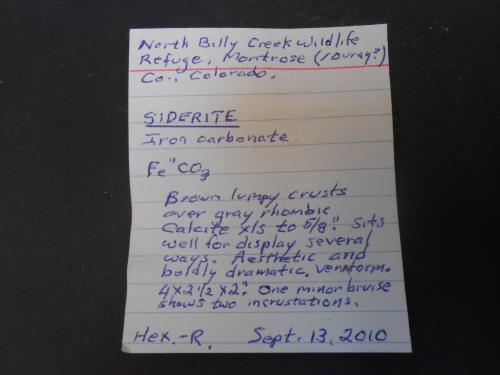 North Billy Creek Wildlife
Refuge, Montrose (/Ouray?)
Co., Colorado.
SIDERITE
Iron carbonate
Fe"CO3
Brown lumpy crusts
over gray rhombic
Calcite xls to 5/8". Sits
well for display several
ways. Aesthetic and
boldly dramatic. Veniform.
4x2 1/2 x2". One minor bruise
shows two incrustations.
Hex.-R. Sept. 13, 2010